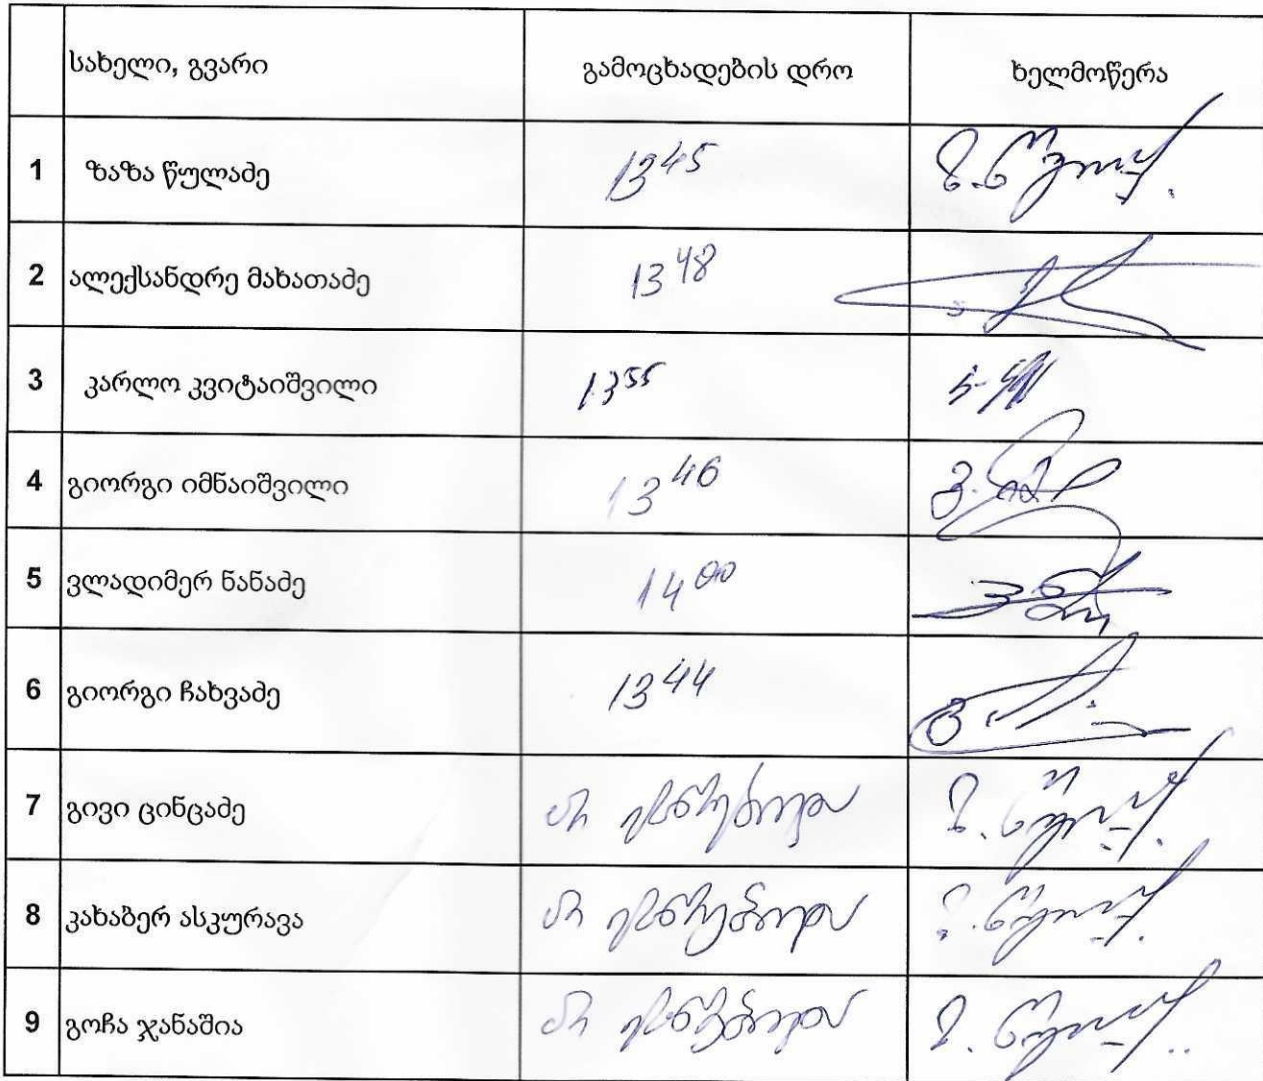 სახელი, გვარი გამოცხადების დრო ხელმოწერა
1 ზაზა წულაძე 13 45 ზ. წულაძე
2 ალექსანდრე მახათაძე 13 48
3 კარლო კვიტაიშვილი 13 55
4 გიორგი იმნაიშვილი 13 46
5 ვლადიმერ ნანაძე 14 00
6 გიორგი ჩახვაძე 13 44
7 გივი ცინცაძე არ ესწრებოდა
8 კახაბერ ასკურავა არ ესწრებოდა
9 გოჩა ჯანაშია არ ესწრებოდა